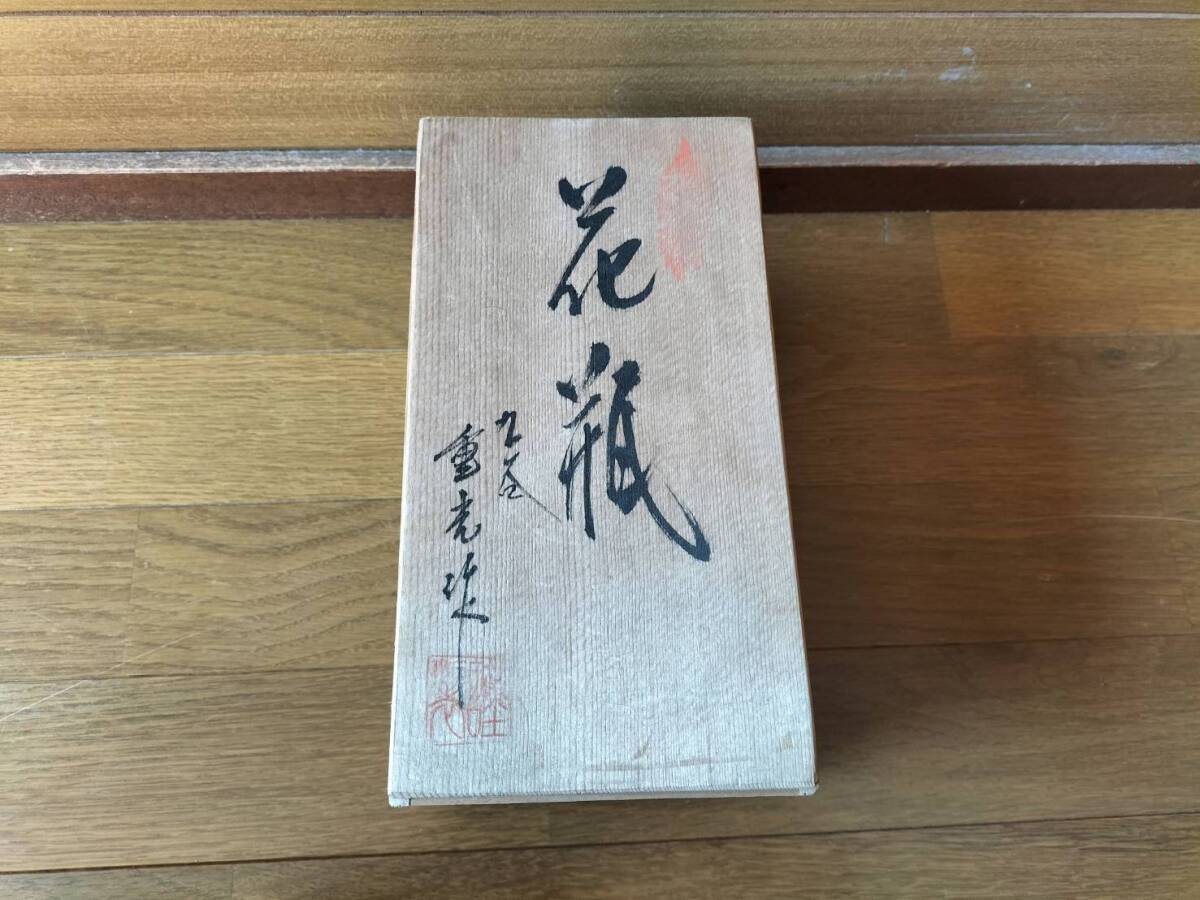 花瓶
九谷
重光作